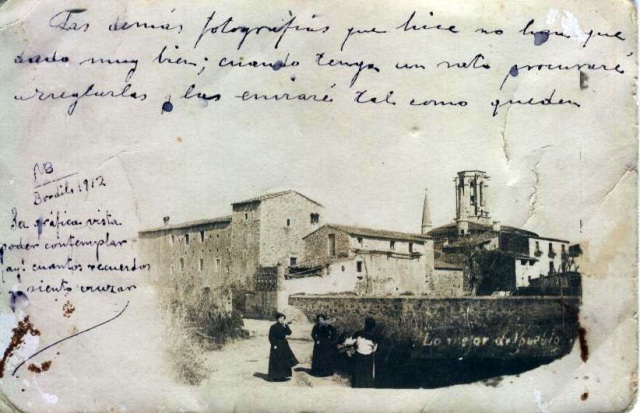 Las demás fotografías que hice no han que
dado muy bien; cuando tenga un rato procuraré
arreglarlas y las enviaré tal como queden
NB
Bordils 1912
gráfica vista
poder contemplar
ay! cuantos recuerdos
siento cruzar
Lo mejor del pueblo